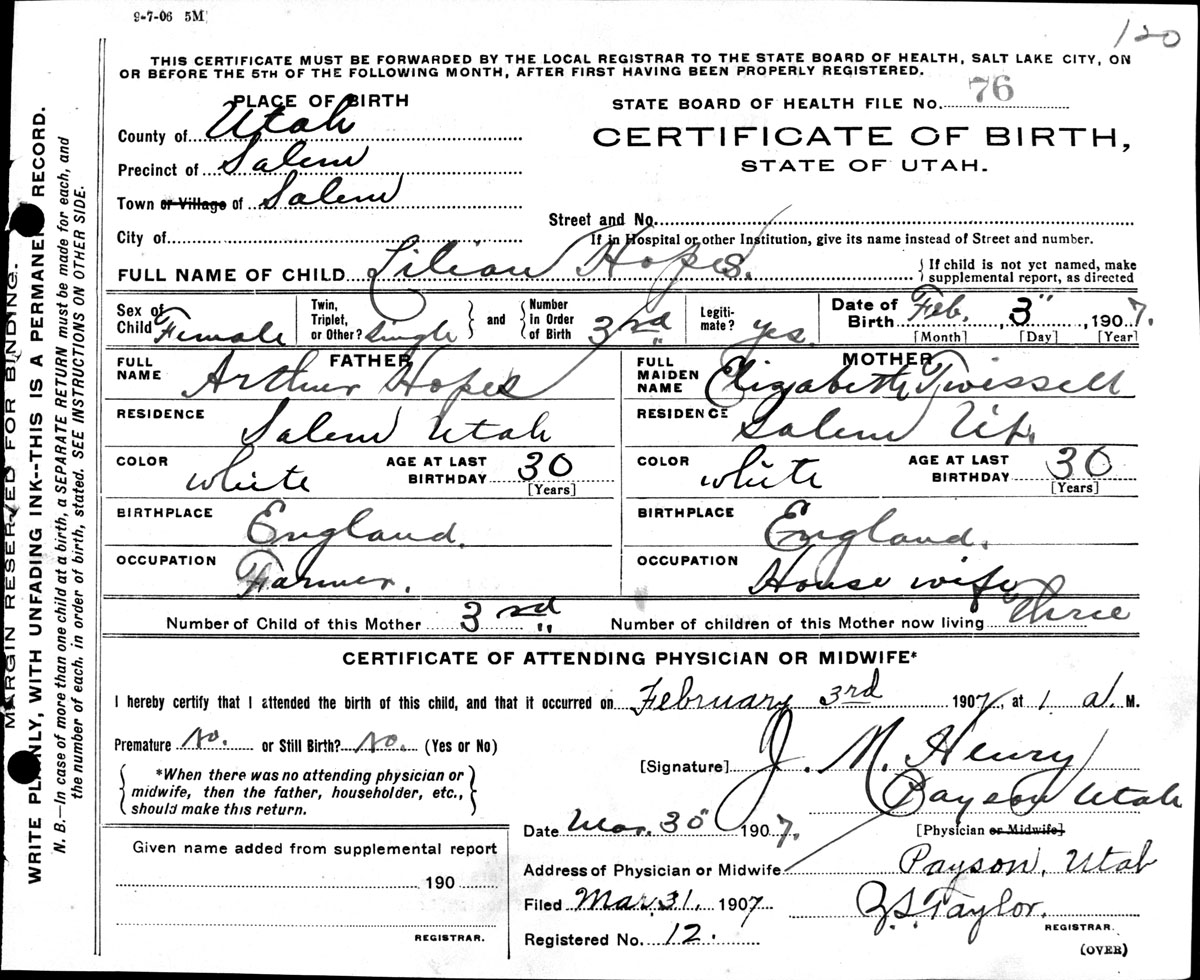 9-7-06 5M
120
THIS CERTIFICATE MUST BE FORWARDED BY THE LOCAL REGISTRAR TO THE STATE BOARD OF HEALTH, SALT LAKE CITY, ON
OR BEFORE THE 5TH OF THE FOLLOWING MONTH, AFTER FIRST HAVING BEEN PROPERLY REGISTERED.
PLACE OF BIRTH
County of Utah
Precinct of Salem
Town or Village of Salem
City of
STATE BOARD OF HEALTH FILE No. 76
CERTIFICATE OF BIRTH,
STATE OF UTAH.
Street and No.
If in Hospital or other Institution, give its name instead of Street and number.
FULL NAME OF CHILD Lilian Hopes. If child is not yet named, make
supplemental report, as directed
Sex of Child Female
Twin, Triplet, or Other? Single
and Number In Order of Birth 3rd
Legitimate? yes.
Date of Birth Feb. 3", 1907.
[Month] [Day] [Year]
FATHER
FULL NAME Arthur Hopes
RESIDENCE Salem Utah
COLOR white AGE AT LAST BIRTHDAY 30
[Years]
BIRTHPLACE England.
OCCUPATION Farmer.
MOTHER
FULL MAIDEN NAME Elizabeth Twissell
RESIDENCE Salem Ut.
COLOR white AGE AT LAST BIRTHDAY 30
[Years]
BIRTHPLACE England.
OCCUPATION House wife
Number of Child of this Mother 3rd Number of children of this Mother now living Three
CERTIFICATE OF ATTENDING PHYSICIAN OR MIDWIFE*
I hereby certify that I attended the birth of this child, and that it occurred on February 3rd 1907, at 1 a. M.
Premature No. or Still Birth? No. (Yes or No)
*When there was no attending physician or
midwife, then the father, householder, etc.,
should make this return.
[Signature] J. M. Henry
Payson Utah
[Physician or Midwife]
Date Mar. 30" 1907.
Address of Physician or Midwife Payson, Utah
Filed Mar. 31, 1907
Registered No. 12.
Taylor.
REGISTRAR.
(OVER)
Given name added from supplemental report
190
REGISTRAR.
MARGIN RESERVED FOR BINDING.
WRITE PLAINLY, WITH UNFADING INK--THIS IS A PERMANENT RECORD.
N. B.—In case of more than one child at a birth, a SEPARATE RETURN must be made for each, and
the number of each, in order of birth, stated. SEE INSTRUCTIONS ON OTHER SIDE.